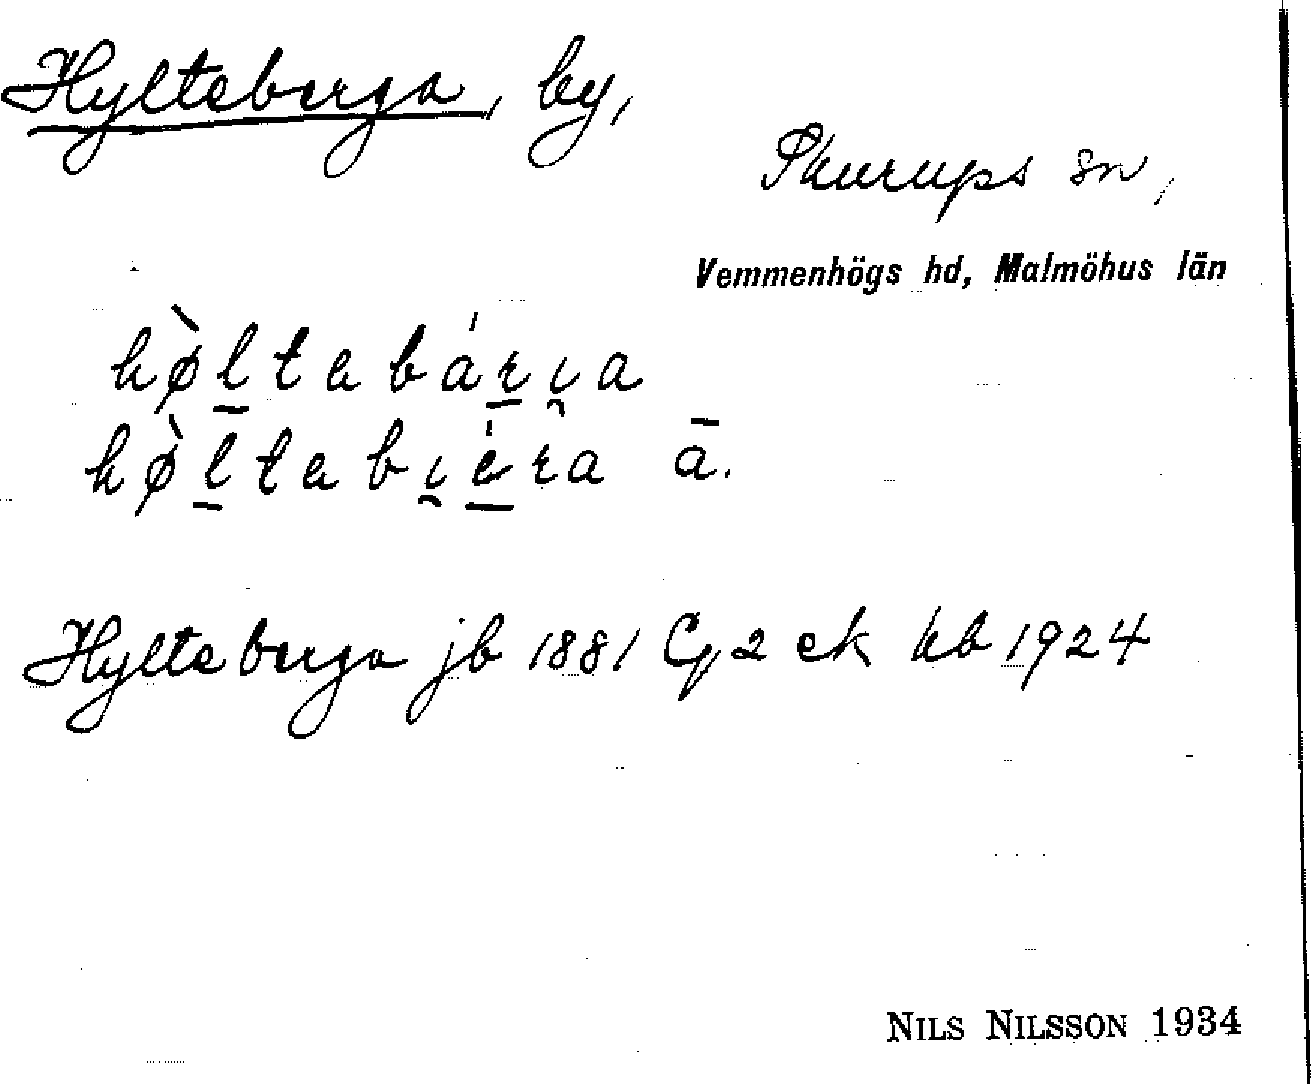 Hylteberga, by,
Skurups sn,
Vemmenhögs hd, Malmöhus län
hø̀l̲tabár̲ı̯a
hø̀l̲tabı̯é̲ra ā.
Hylteberga jb 1881 C, 2 ek kb 1924
NILS NILSSON 1934